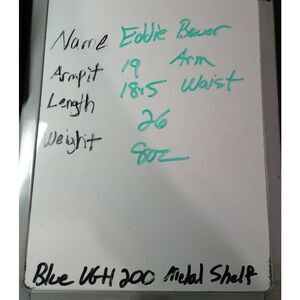 Name Eddie Bauer
Armpit 19 Arm
Length 18.5 Waist
26
Weight 8oz
Blue UGH 200 Metal Shelf